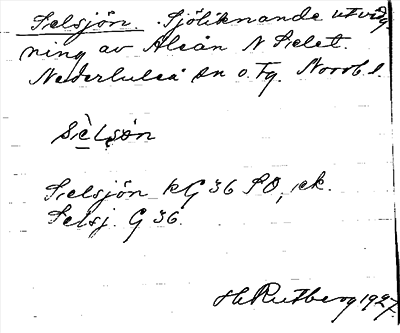 Selsjön. Sjöliknande utvidg
ning av Aleån N Selet.
Nederluleå sn o. tg. Norrb. l.
Sèlsøn
Selsjön kG 36 SO, ek.
Selsj. G 36.
H. Rutberg 1927.